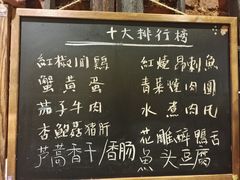 十大排行榜
紅椒回鍋 紅燒昂刺魚
蟹黃蛋 青菜燒肉圓
茄子牛肉 水煮肉片
杏鮑菇猪肝 花雕醉鴨舌
芦蒿香干/香肠 魚头豆腐